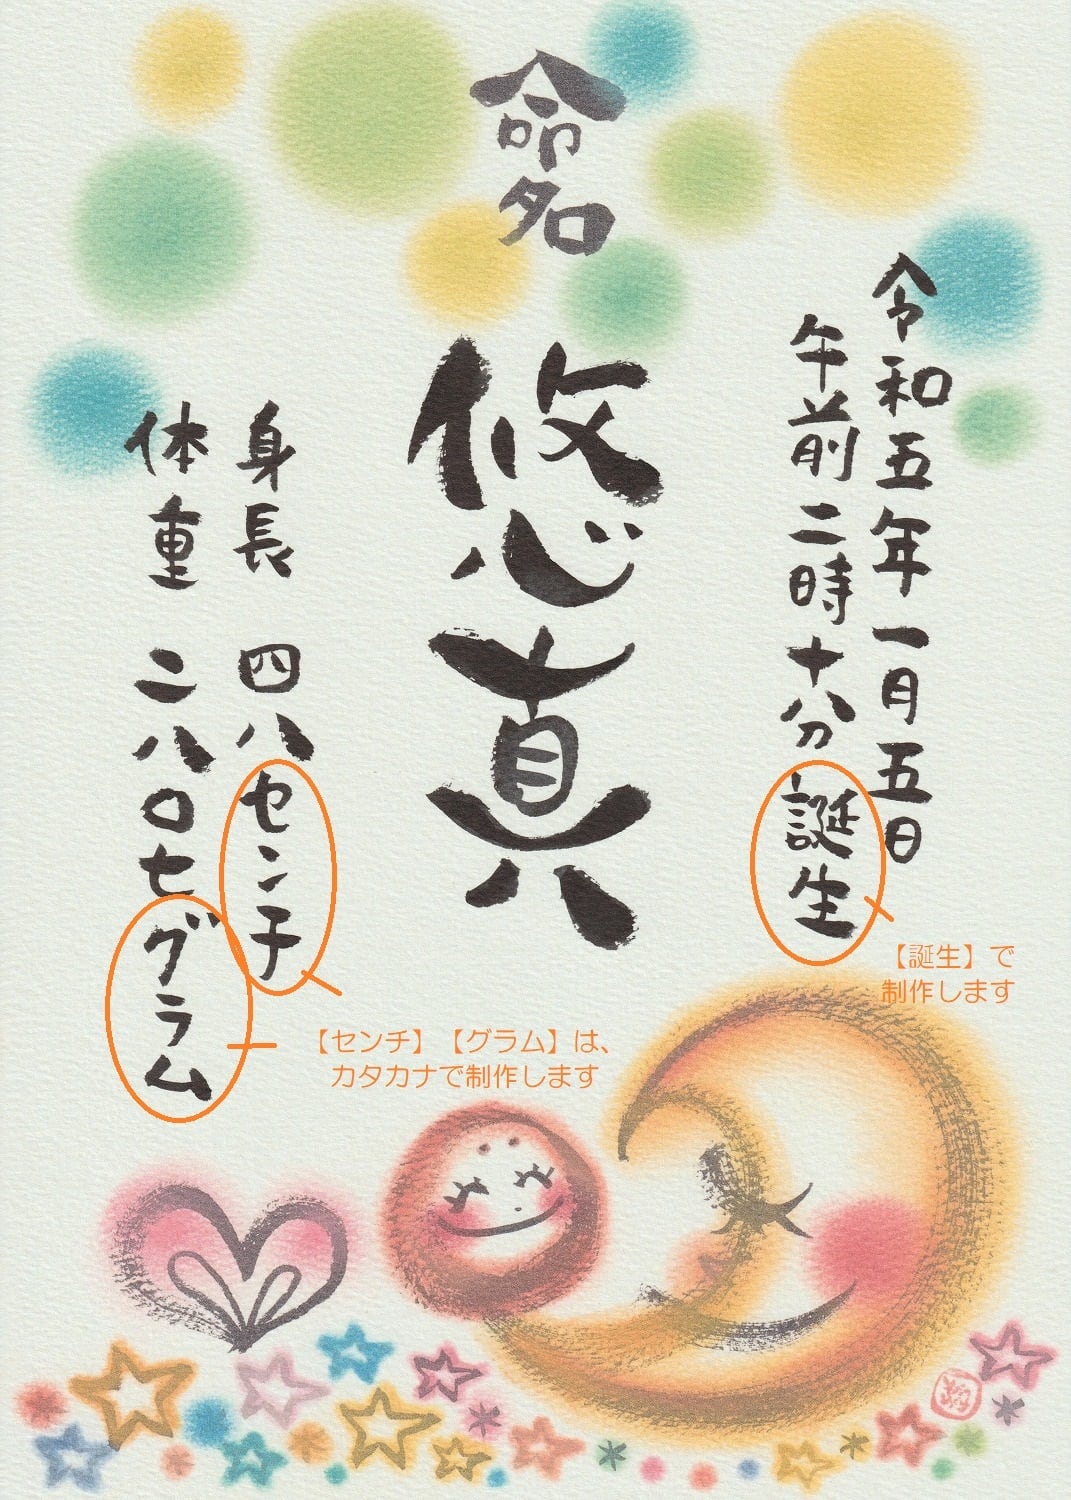 命名
令和五年一月五日
午前二時十分誕生
悠真
身長 四八センチ
体重 二八〇七グラム
【誕生】で
制作します
【センチ】【グラム】は、
カタカナで制作します